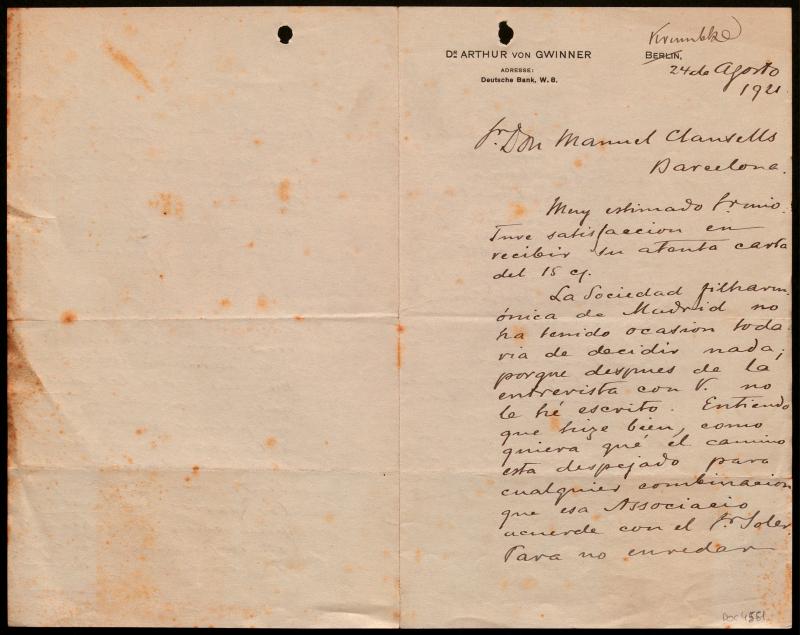 Krumbke
Dr. ARTHUR VON GWINNER
BERLIN,
ADRESSE:
Deutsche Bank, W. 8.
24 de Agosto
1921
Sr. Don Manuel Clausells
Barcelona.
Muy estimado Sr. mio.
Tuve satisfaccion en
recibir su atenta carta
del 15 cj.
La Sociedad filharm-
ónica de Madrid no
ha tenido ocasion toda
via de decidir nada;
porque despues de la
entrevista con V. no
le hé escrito. Entiendo
que hize bien, como
quiera qué el camino
esta despejado para
cualquier combinacion
que esa Associacio
acuerde con el Sr. Soler.
Para no enredar
Doc 4551.